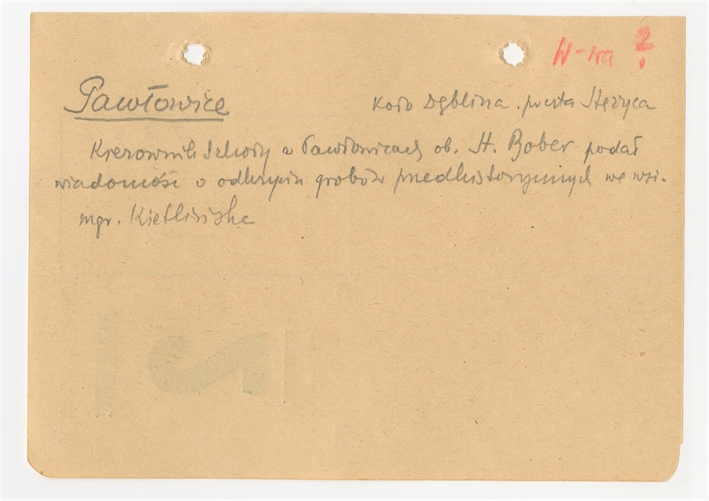 W-wa ?
Pawłowice
koło Dęblina. poczta Stężyca
Kierownik szkoły w Pawłowicach ob. H. Bober podał
wiadomość o odkryciu grobów przedhistorycznych we wsi.
mgr. Kietlińska